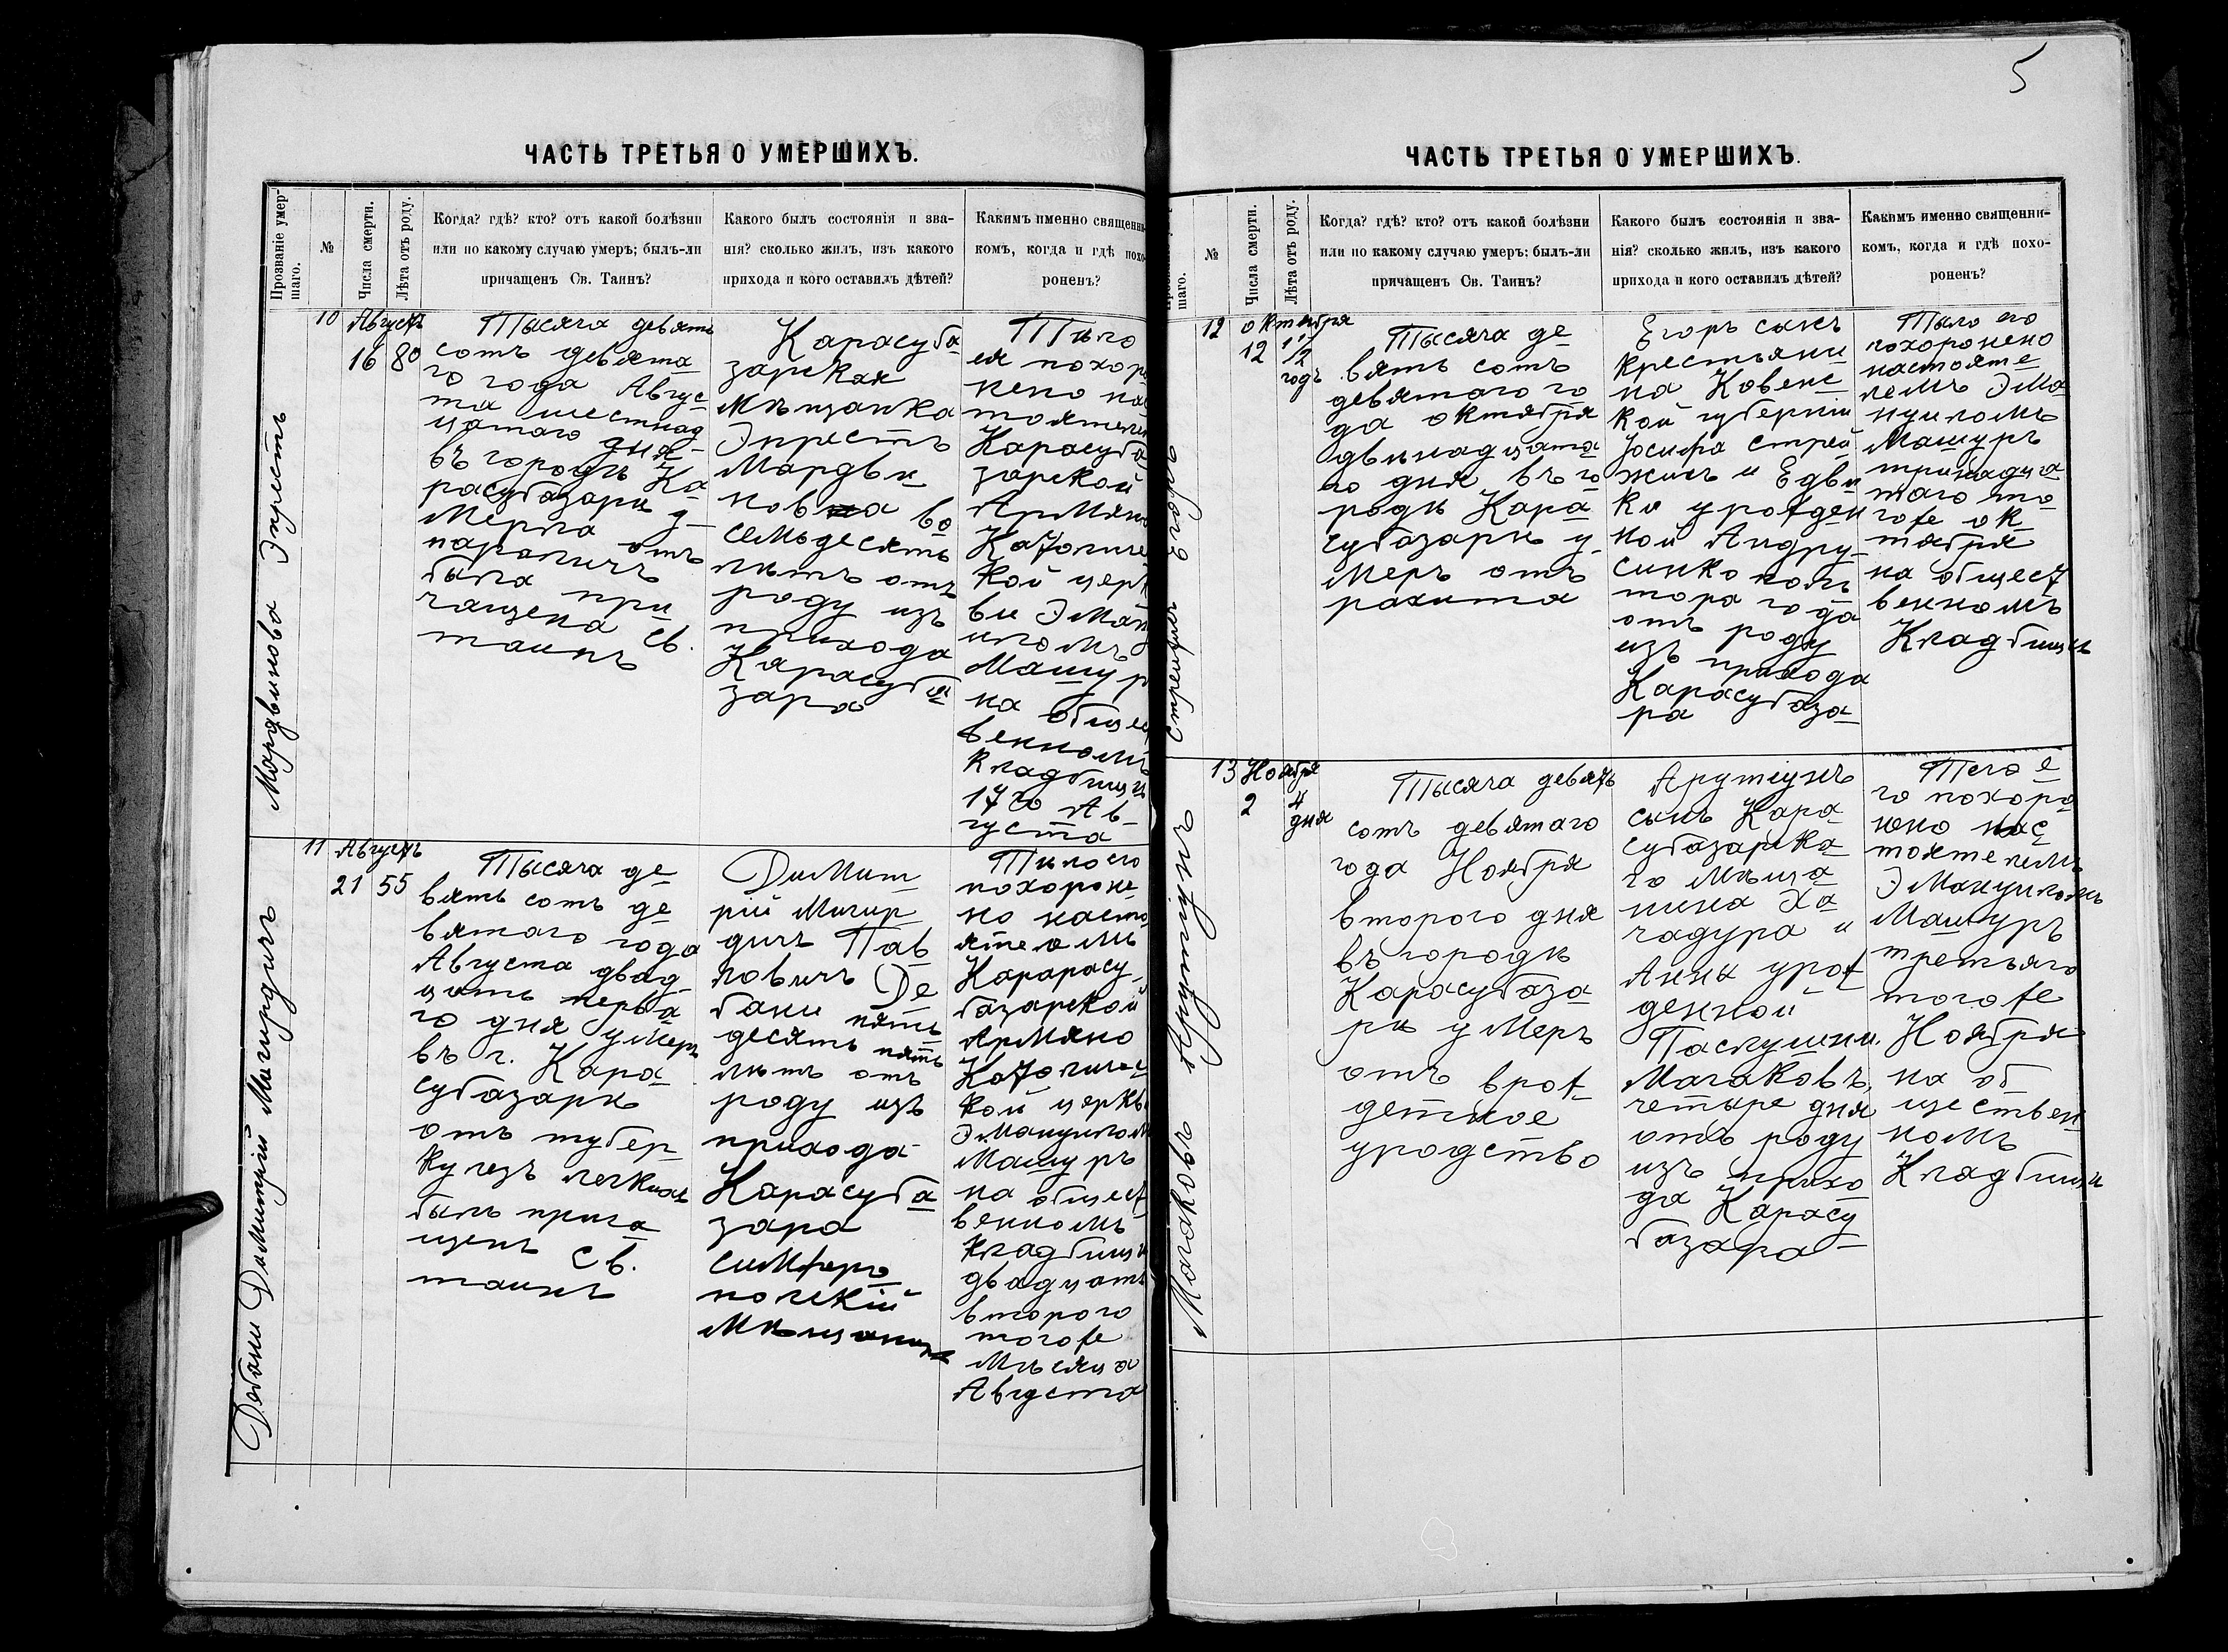 ЧАСТЬ ТРЕТЬЯ О УМЕРШИХЪ.
Прозваніе умер-
шаго.
№
Числа смерти.
Лѣта отъ роду.
Когда? гдѣ? кто? отъ какой болѣзни
или по какому случаю умеръ; былъ-ли
причащенъ Св. Таинъ?
Какого былъ состоянія и зва-
нія? сколько жилъ, изъ какого
прихода и кого оставилъ дѣтей?
Какимъ именно священни-
комъ, когда и гдѣ похо-
роненъ?
Мардвинова Эпрестъ
10
Августъ
16 80
Тысяча девять
сотъ девята
го года Авгус
та шестнад
цатаго дня
въ городѣ Ка
расубазарѣ у
мерла отъ
параличъ
была при
чащена св.
таинъ
Карасуба
зарская
мѣщанка
Эпрестъ
Мардви
нова во
семьдесятъ
лѣтъ отъ
роду изъ
прихода
Карасуба
зара
Тѣло
ея похоро
нено нас
тоятелем
Карасуба
зарской
Армяно
Католичес
кой церк
ви Эману
иломъ
Машуръ
на общест
венномъ
кладбищѣ
17го Ав
густа
Дебани Димитрій Мигирдичъ
11
Августъ
21 55
Тысяча де
вять сотъ де
вятаго года
Августа двад
цать перва
го дня умеръ
въ г. Кара
субазарѣ
отъ тубер
кулезъ легкихъ
былъ прича
щенъ св.
таинъ
Димит
рій Мигир
дичъ Пав
ловичъ Де
бани пять
десять пять
лѣтъ отъ
роду изъ
прихода
Карасуба
зара
симферо
польскій
мѣщанинъ
Тѣло его
похороне
но насто
ятелемъ
Карарасу
базарской
Армяно
Католичес
кой церкв
Эмануилом
Машуръ
на общест
венномъ
кладбищѣ
двадцать
второго
тогоже
мѣсяца
Августа
5
ЧАСТЬ ТРЕТЬЯ О УМЕРШИХЪ.
шаго.
№
Числа смерти.
Лѣта отъ роду.
Когда? гдѣ? кто? отъ какой болѣзни
или по какому случаю умеръ; былъ-ли
причащенъ Св. Таинъ?
Какого былъ состоянія и зва-
нія? сколько жилъ, изъ какого
прихода и кого оставилъ дѣтей?
Какимъ именно священни-
комъ, когда и гдѣ похо-
роненъ?
Егоръ
12
октября
12 1 1/2
годъ
Тысяча де
вять сотъ
девятаго го
да октября
двѣнадцата
го дня въ го
родѣ Кара
субазарѣ у
меръ отъ
рахита
Егоръ сынъ
крестьяни
на Ковенс
кой губерніи
Іосифа Стрей
жисъ и Едви
ки урожден
ной Андру
синко полъ
тора года
отъ роду
изъ прихода
Карасубаза
ра
Тѣло его
похоронено
настояте
лемъ Эма
нуиломъ
Машуръ
тринадца
таго то
гоже ок
тября
на общест
венномъ
Кладбищѣ
Магаковъ Арутіунъ
13
Ноября
2 4
дня
Тысяча девять
сотъ девятаго
года Ноября
второго дня
въ городѣ
Карасубаза
рѣ умеръ
отъ врож
детное
уродство
Арутіунъ
сынъ Кара
субазарска
го мѣща
нина Ха
чадура и
Анна урож
денной
Магаковъ
четыре дня
отъ роду
изъ прихо
да Карасу
базара
Тело е
го похоро
нено нас
тоятелемъ
Эмануиломъ
Машуръ
третьяго
тогоже
Ноября
на об
ществен
номъ
Кладбищѣ